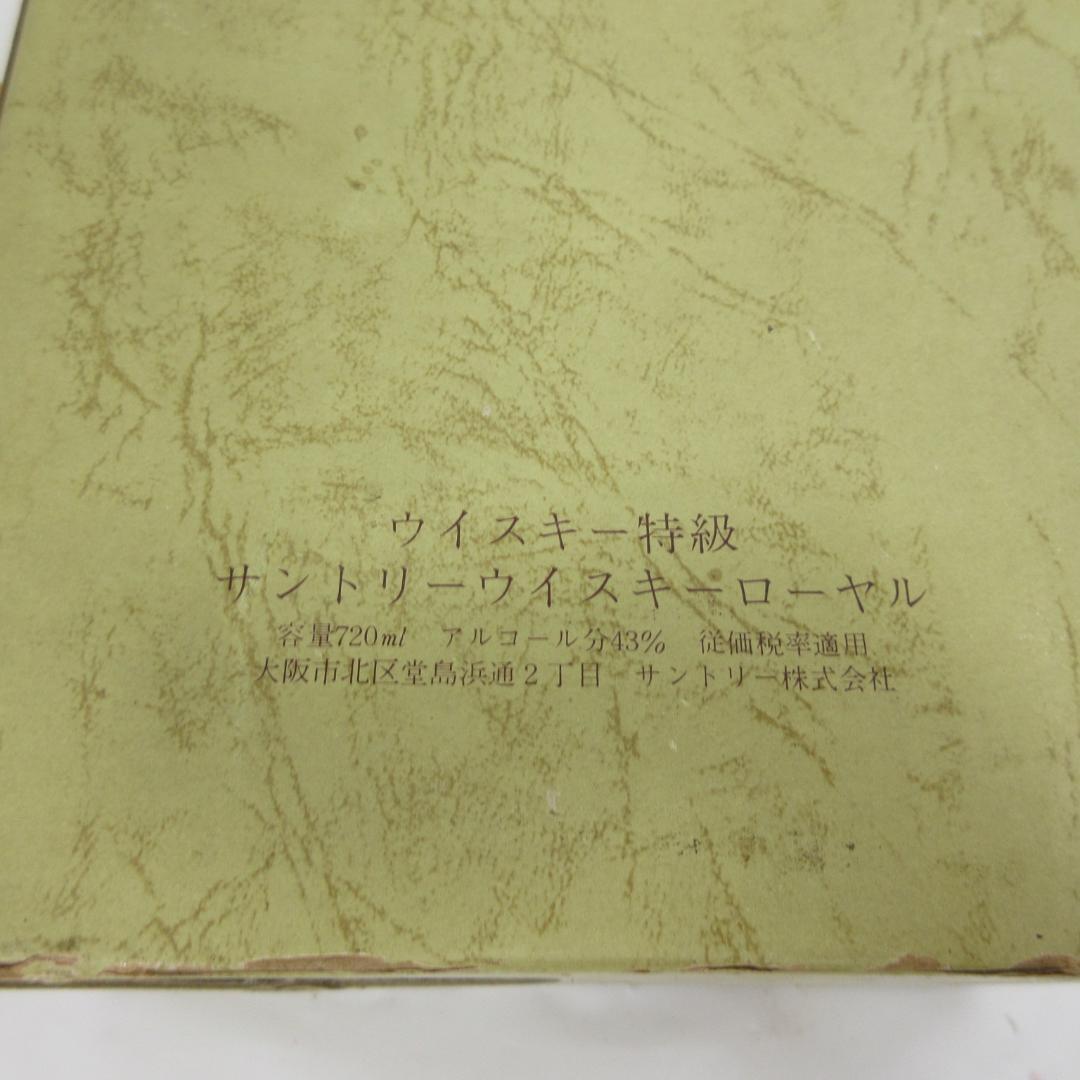 ウイスキー特級
サントリーウイスキーローヤル
容量720ml アルコール分43% 従価税率適用
大阪市北区堂島浜通2丁目 サントリー株式会社